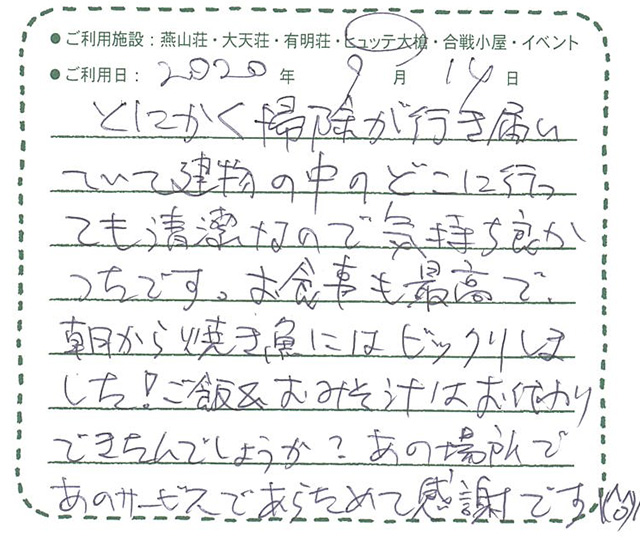 ●ご利用施設：燕山荘・大天荘・有明荘・ヒュッテ大槍・合戦小屋・イベント
●ご利用日：2020年9月14日
とにかく掃除が行き届い
ていて建物の中のどこに行っ
ても清潔なので気持ち良か
ったです。お食事も最高で、
朝から焼き魚にはビックリしま
した！ご飯&おみそ汁はお代わり
できたんでしょうか？あの場所で
あのサービスであらためて感謝です(^o^)